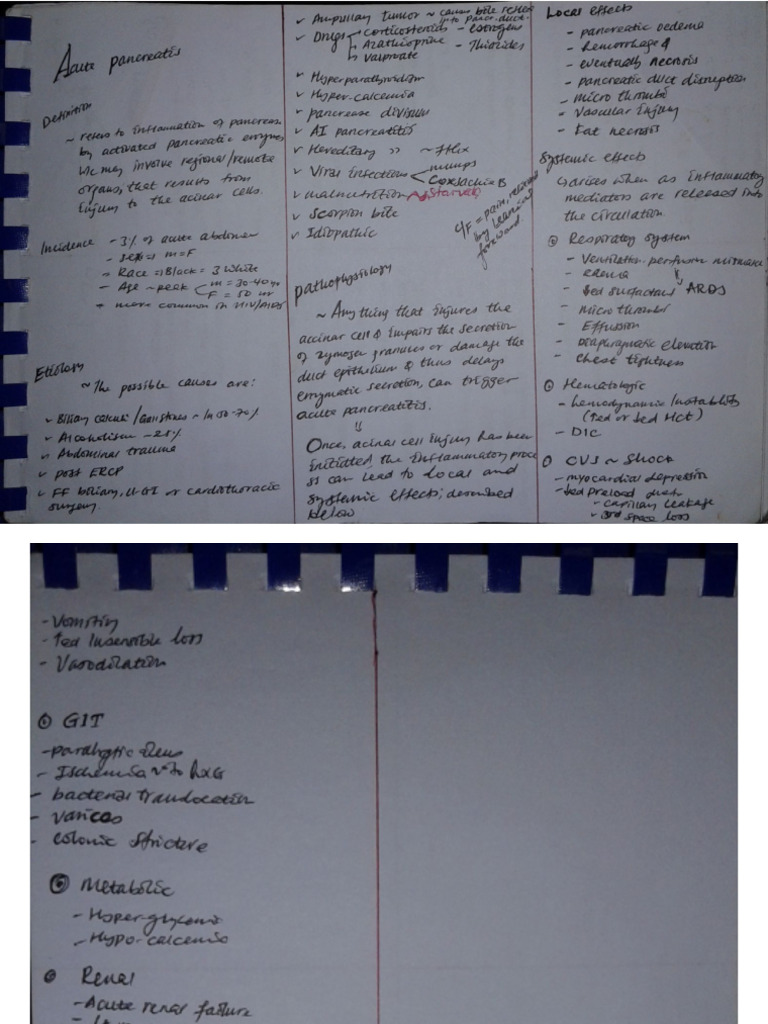 Acute pancreatitis
Definition
~ refers to inflammation of pancreas
by activated pancreatic enzymes
& may involve regional/remote
organs, that results from
injury to the acinar cells.
Incidence - 3% of acute abdomen
- sex = M=F
- Race = Black = 3 White
- Age ~ peak < M = 30-40 yo
F = 50 yr
- more common in HIV/AIDS
Etiology
~ The possible causes are:
✓ Biliary calculi / Gallstones ~ in 50-70%
✓ Alcoholism ~ 25%
✓ Abdominal trauma
✓ post ERCP
✓ FF biliary, U-GI or cardiothoracic
surgery.
✓ Ampullary tumor ~ causes bile reflux
into panc. duct.
✓ Drugs - corticosteroids - estrogens
- Azathioprine - Thiazides
- Valproate
✓ Hyperparathyroidism
✓ Hyper-calcemia
✓ pancrease divisum
✓ AI pancreatitis
✓ Hereditary "
✓ Viral infections < mumps
Coxsackie B
✓ malnutrition ~
✓ Scorpion bite
✓ Idiopathic
C/F = pain, relieved
by leaning
forward
pathophysiology
~ Anything that injures the
accinar cell & impairs the secretion
of zymogen granules or damage the
duct epithelium & thus delays
enzymatic secretion, can trigger
acute pancreatitis.
⇓
Once, acinar cell injury has been
initiated, the inflammatory proce
ss can lead to local and
systemic effects; described
below
Local effects
- pancreatic oedema
- hemorrhage &
- eventually necrosis
- pancreatic duct disruption
- micro thrombi
- Vascular injury
- Fat necrosis
Systemic effects
↳ arises when as inflammatory
mediators are released into
the circulation.
Respiratory system
- Ventilation-perfusion mismatch
- edema
- ↓sed surfactant ARDS
- micro thrombi
- Effusion
- Diaphragmatic elevation
- Chest tightness
Hematologic
- hemodynamic instability
(↑ed or ↓sed HCt)
- DIC
CVS ~ Shock
- myocardial depression
- ↓sed preload due to
- capillary leakage
- 3rd space loss
- Vomiting
- ↑ed insensible loss
- Vasodilation
GIT
- paralytic ileus
- Ischemia
- bacterial translocation
- varices
- colonic stricture
Metabolic
- Hyper-glycemi
- Hypo-calcemia
Renal
- Acute renal failure